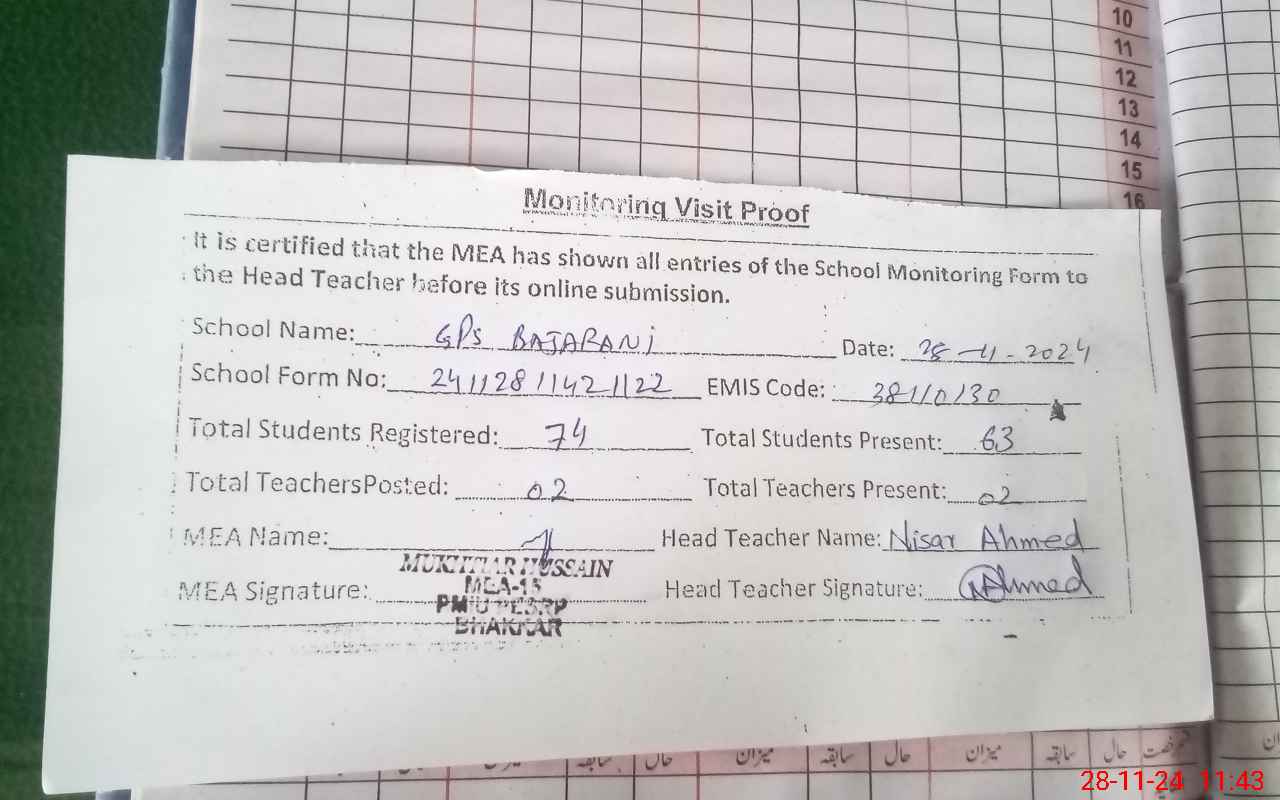 10
11
12
13
14
15
16
Monitoring Visit Proof
It is certified that the MEA has shown all entries of the School Monitoring Form to
the Head Teacher before its online submission.
School Name: GPS BAJARANI Date: 28-11-2024
School Form No: 24112811421122 EMIS Code: 38110130
Total Students Registered: 74 Total Students Present: 63
Total TeachersPosted: 02 Total Teachers Present: 02
MEA Name: Head Teacher Name: Nisar Ahmed
MUKHTIAR HUSSAIN
MEA-15
MEA Signature: Head Teacher Signature: NAhmed
PMIU PESRP
BHAKKAR
میزان سابقہ حال میزان سابقہ حال
28-11-24 11:43